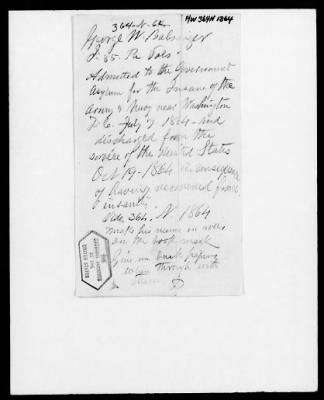 364-N-64
NW 364N 1864
George W. Balsinger
I. 85. Pa Vols.
Admitted to the Government
Asylum for the Insane of the
Army & Navy near Washington
D.C. July 7 1864 and
discharged from the
service of the United States
Oct 19-1864 in consequence
of having recovered from
insanity
Vide 364. N 1864
Make his name in rolls
on the book mark
Give me back papers
when through with
them